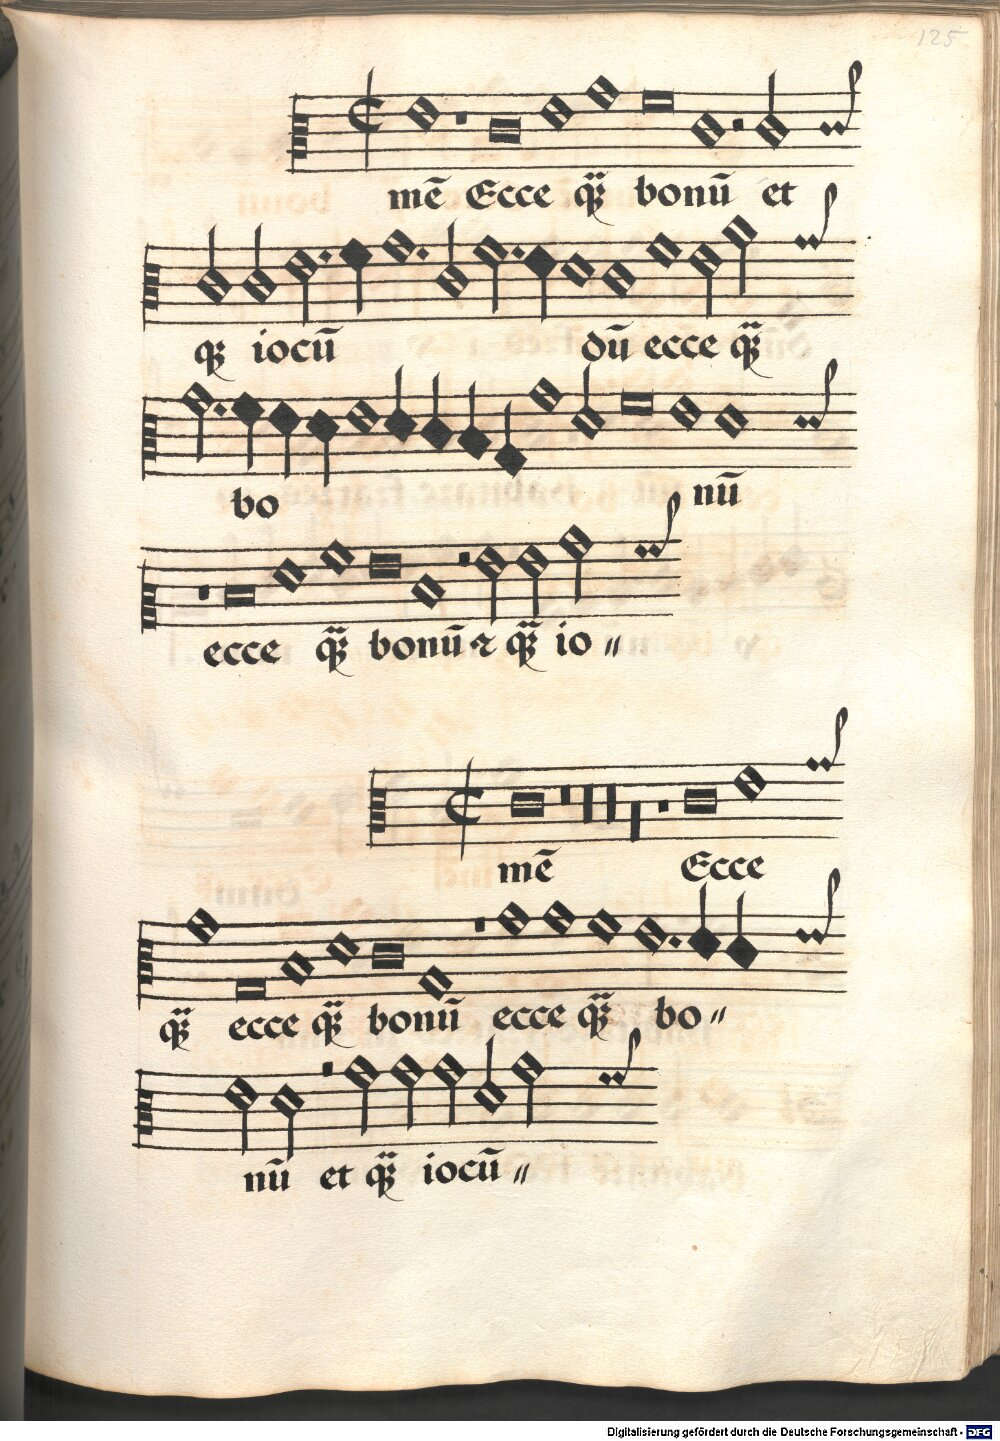 125
mē Ecce qȝ̈ bonū et
qȝ iocū dū ecce qȝ̈
bo nū
ecce qȝ̈ bonū ⁊ qȝ̈ io〃
mē Ecce
qȝ̈ ecce qȝ̈ bonū ecce qȝ̈ bo〃
nū et qȝ̈ iocū〃
Digitalisierung gefördert durch die Deutsche Forschungsgemeinschaft - DFG